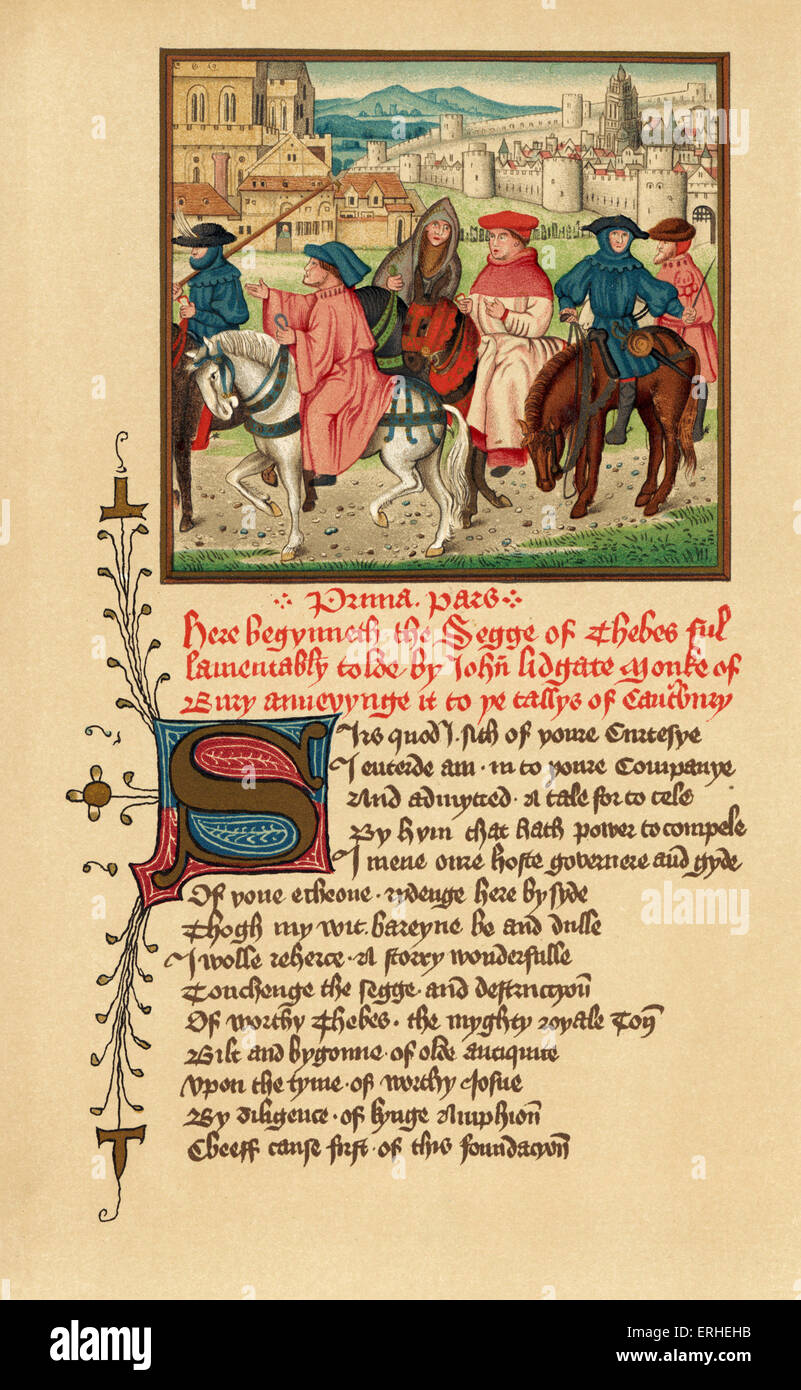 Prima. Pars
Here begynneth the Segge of Thebes ful
lamentably tolde by Johñ lidgate Monke of
Bury annexynge it to ye tallys of Cantbury
Sirs quod I. sith of youre Curtesye
I enterde am. in to youre Companye
And admytted. A tale for to tele
By hym that hath power to compele
I mene oure hoste governere and gyde
Of yone echeone. rydenge here by syde
Thogh my wit. bareyne be and dulle
I wolle reherce. A storry wonderfulle
Touchenge the segge. and destructyoñ
Of worthy Thebes. the myghty royale Toñ
Bilt and bygonne. of olde antiquite
Upon the tyme. of worthy Josue
By diligence. of kynge Amphioñ
Cheeff cause first. of this foundacyoñ
a
alamy
alamy stock photo
ERHEHB
www.alamy.com